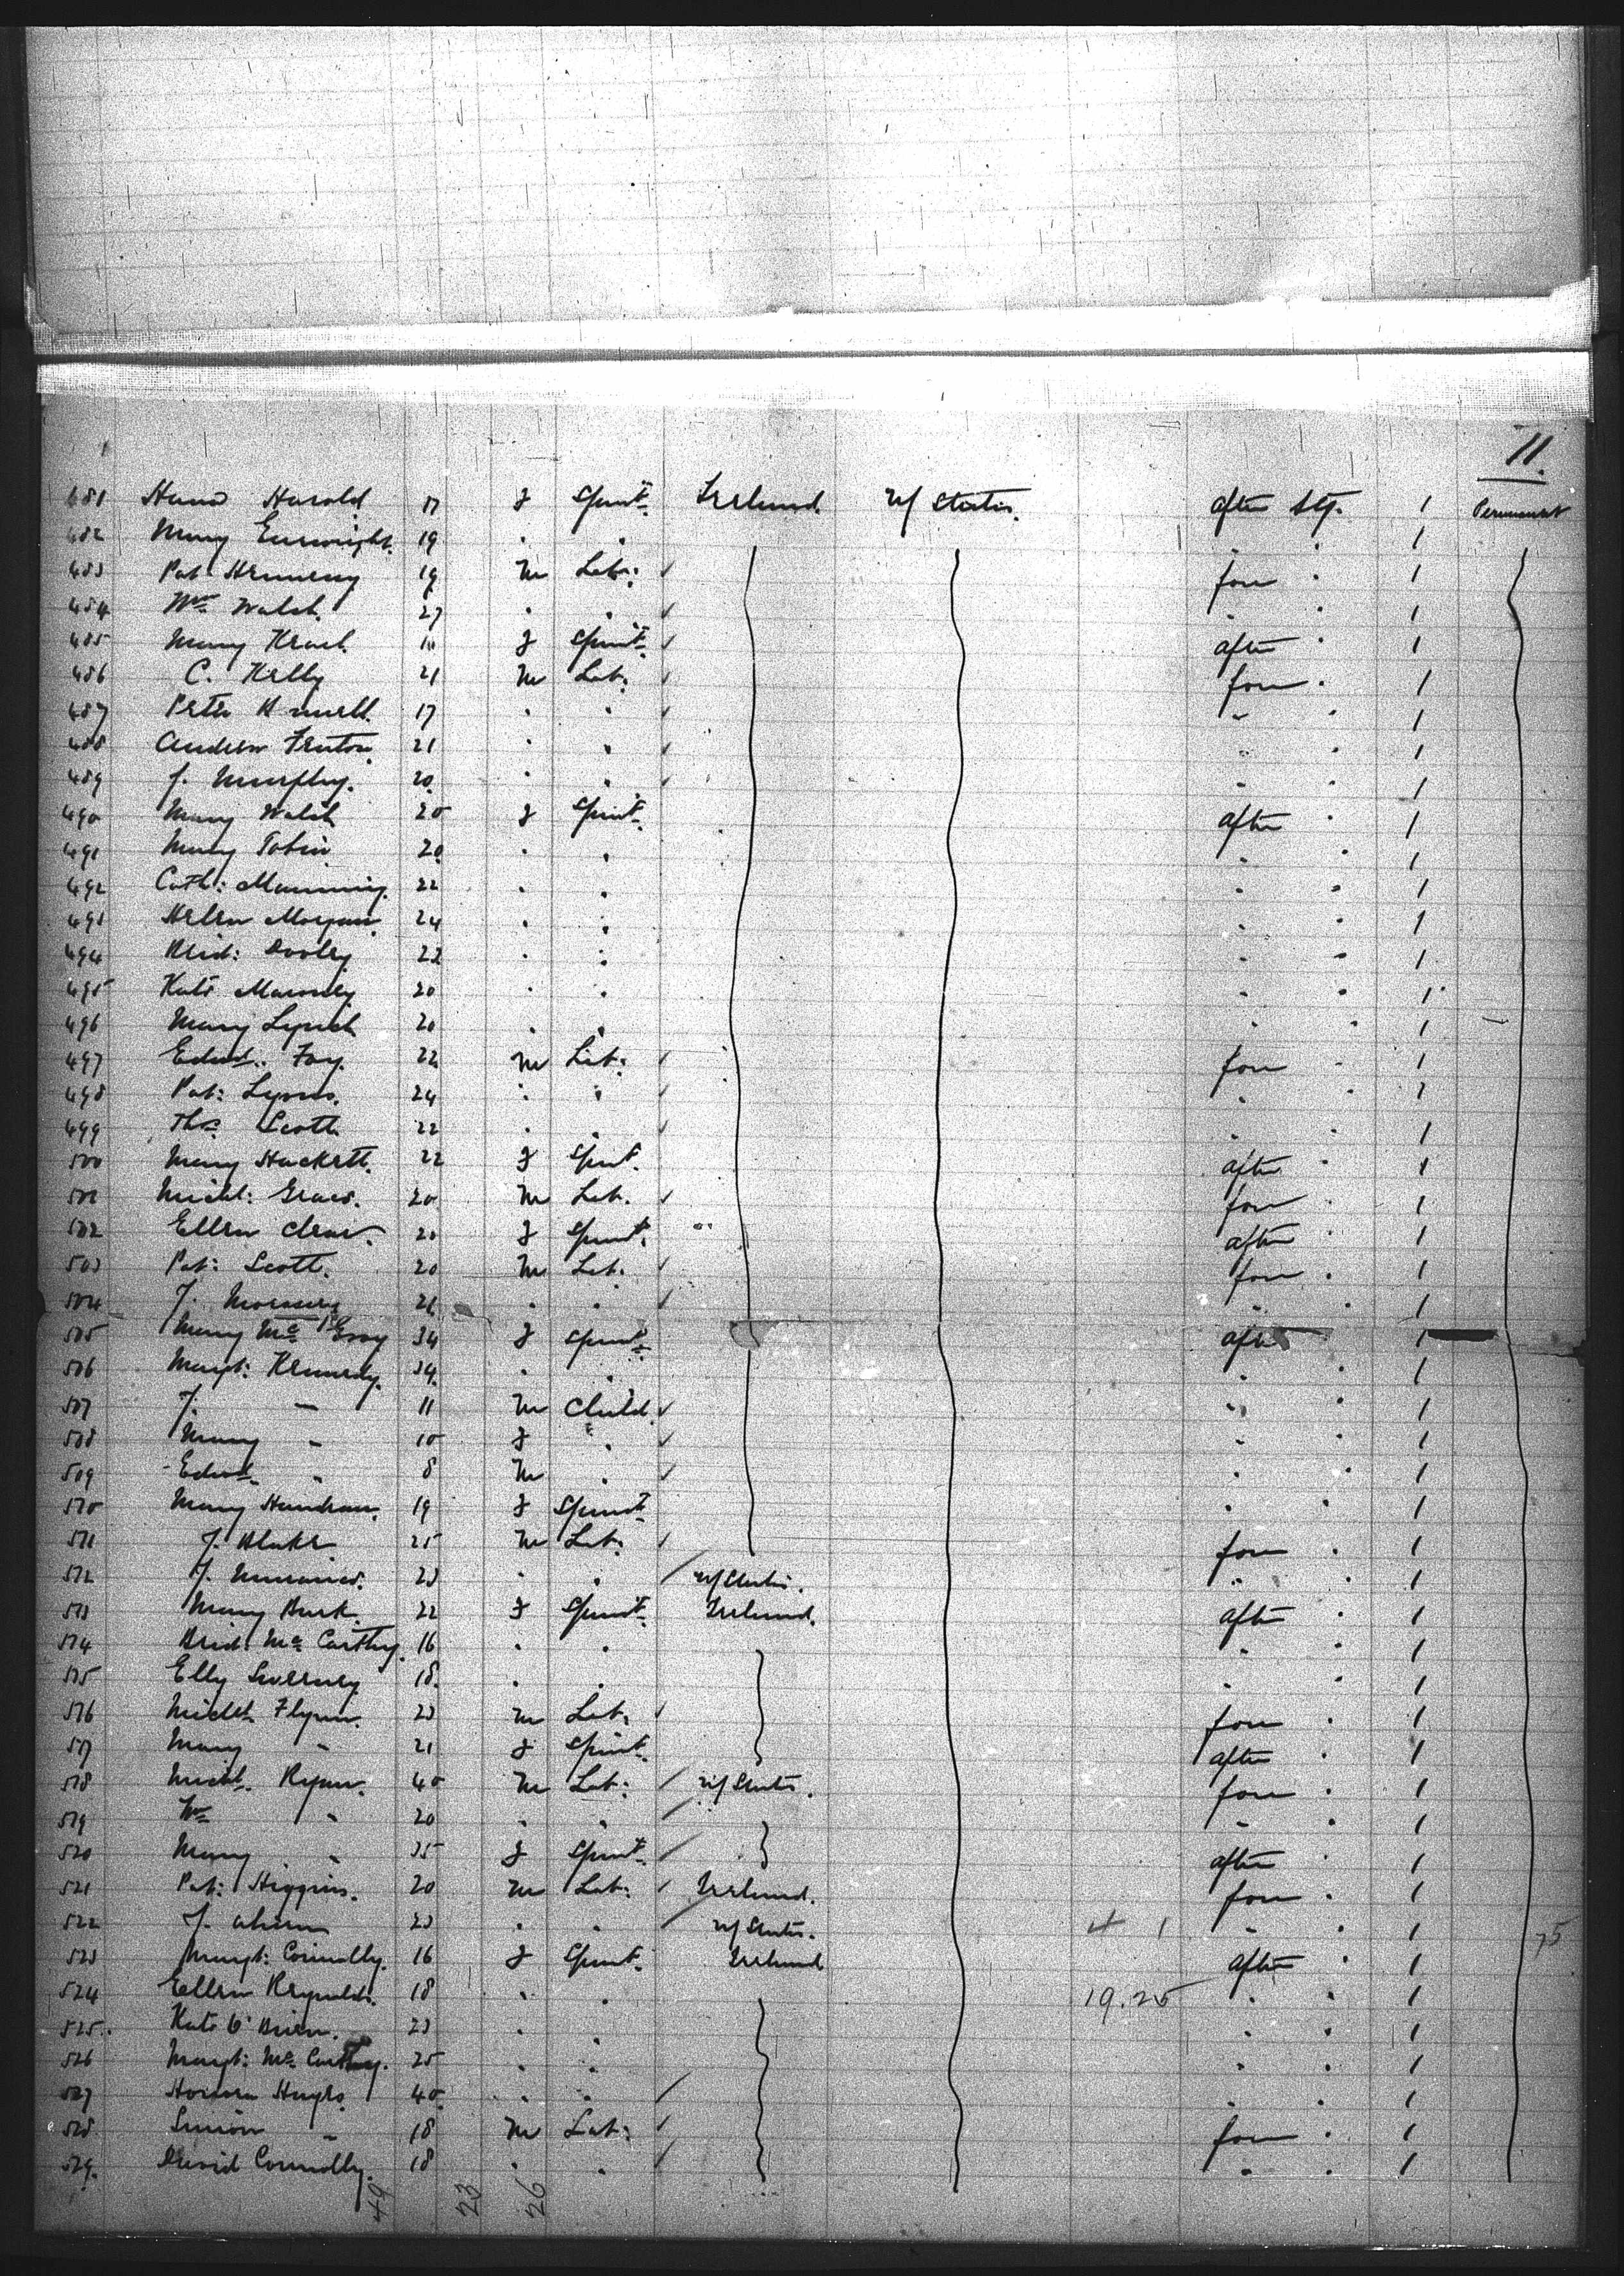 11.
481 Harold 17 f Spinst. Ireland. U/States. after Stg. 1 Permanent
482 Mary Enwright. 19 " " " " 1
483 Pat: Hennessy 19 m Lab: fore " 1
484 Wm Walsh. 27 " " " " 1
485 Mary f Spinst. after " 1
486 C. Kelly 21 m Lab: fore " 1
487 Peter 17 " " " " 1
488 Andrew Fenton. 21 " " " " 1
489 J. Murphy. 20 " " " " 1
490 Mary Walsh 20 f Spinst. after " 1
491 Mary Tobin 20 " " " " 1
492 Cath: Manning. 22 " " " " 1
493 Helen Morgan. 24 " " " " 1
494 Brid: Dooley. 22 " " " " 1
495 Kate Maroney 20 " " " " 1
496 Mary Lynch 20 " " " " 1
497 Edwd. Foy. 22 m Lab: fore " 1
498 Pat: Lyons. 24 " " " " 1
499 Thos. Scott 22 " " " " 1
500 Mary Hackett. 22 f Spinst. after " 1
501 Michl: Grace. 20 m Lab. fore " 1
502 Ellen Clear. 20 f Spinst. after " 1
503 Pat: Scott. 20 m Lab. fore " 1
504 J. 21 " " " " 1
505 Mary McEvoy 34 f Spinst. after 1
506 Margt: Kennedy. 34 " " " " 1
507 J. " 11 m Child. " " 1
508 Mary " 10 f " " " 1
509 Edwd. " 8 m " " " 1
510 Mary Hanrahan. 19 f Spinst " " 1
511 J. Blake 25 m Lab: fore " 1
512 J. 23 " " U/States. " " 1
513 Mary Burk. 22 f Spinst. Ireland. after " 1
514 Brid: McCarthy. 16 " " " " 1
515 Elly Sweeney 18. " " " " 1
516 Michl. Flynn. 23 m Lab: fore " 1
517 Mary " 21 f Spinst. after " 1
518 Michl. Ryan. 40 m Lab: U/States. fore " 1
519 Wm " 20 " " " " 1
520 Mary " 35 f Spinst. after " 1
521 Pat: Higgins. 20 m Lab: Ireland. fore " 1
522 J. Ahern 23 " " U/States. 1 " " 1 75
523 Margt: Connolly. 16 f Spinst. Ireland after " 1
524 Ellen Reynolds. 18 " " 19.25 " " 1
525. Kate O'Brien. 23 " " " " 1
526 Margt: McCarthy. 25 " " " " 1
527 Honora Hayes. 40 " " " " 1
528 Simon " 18 m Lab: fore " 1
529. David Connolly. 18 " " " " 1
49 23 26